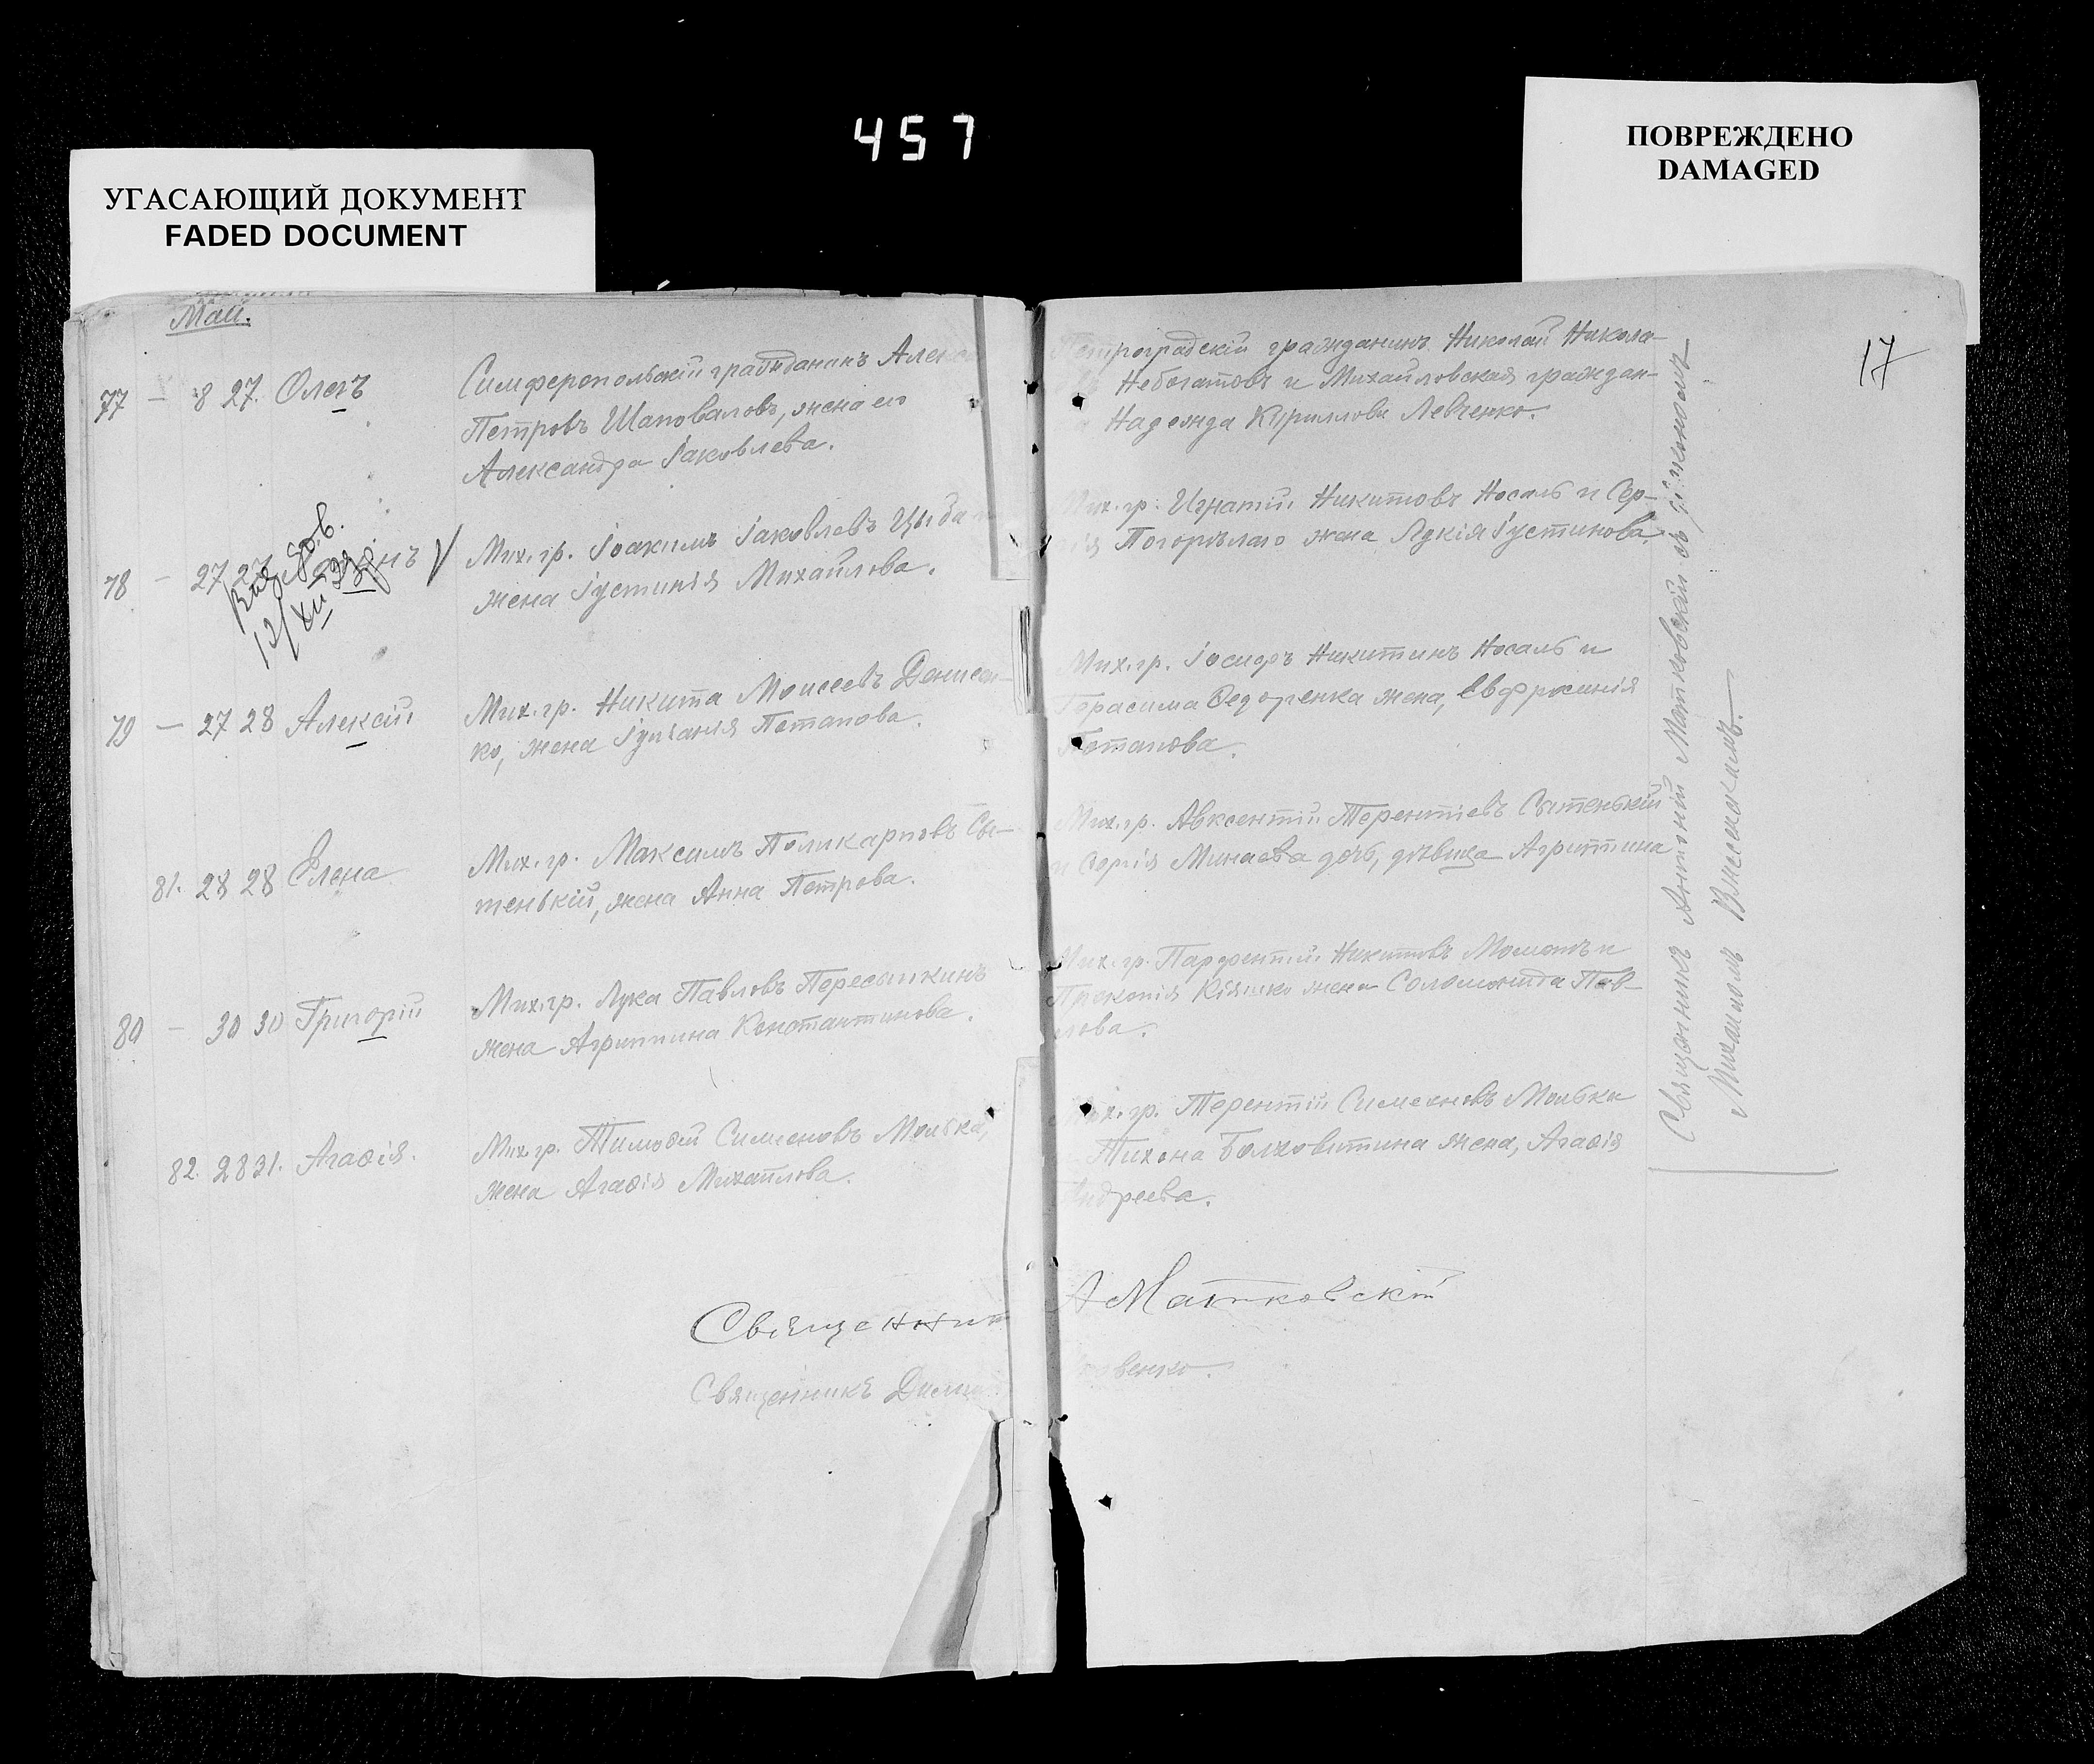 457
УГАСАЮЩИЙ ДОКУМЕНТ
FADED DOCUMENT
ПОВРЕЖДЕНО
DAMAGED
17
Май.
77 — 8 27. Олегъ
Симферопольскій гражданинъ Алекс
Петровъ Шаповаловъ, жена его
Александра Іаковлева.
Петроградскій гражданинъ Николай Никола-
Небогатовъ и Михайловская граждан-
Надежда Кириллова Левченко.
78 — 27 27
Выд. св.
12/XII 39
V
Мих. гр. Іоакимъ Іаковлевъ Цыба
жена Іустинія Михайлова.
Мих. гр. Игнатій Никитовъ Носаль и Сер-
гія Погорѣлаго жена Лукія Іустинова.
79 — 27 28 Алексій
Мих. гр. Никита Моисеевъ Денисен-
ко, жена Іуліанія Потапова.
Мих. гр. Іосифъ Никитинъ Носаль и
Герасима Федоренка жена, Евфросинія
Потапова.
81. 28 28 Елена
Мих. гр. Максимъ Поликарповъ Сы-
тенькій, жена Анна Петрова.
Мих. гр. Авксентій Терентіевъ Сытенькій
и Сергія Минаева дочь, дѣвица Агриппина
80 — 30 30 Григорій
Мих. гр. Лука Павловъ Пересыпкинъ
жена Агриппина Константинова.
Мих. гр. Парфентій Никитовъ и
Прокопія Кіяшко жена Соломонида Пав-
лова.
82. 28 31. Агафія.
Мих. гр. Тимофей Симеоновъ Молька,
жена Агафія Михайлова.
Мих. гр. Терентій Симеоновъ Молька
Тихона Болховитина жена, Агафія
Андреева.
Священник А Матковскій
Священникъ Дими овенко.
Священникъ Антоній Матковскій съ діакономъ
Михаиломъ